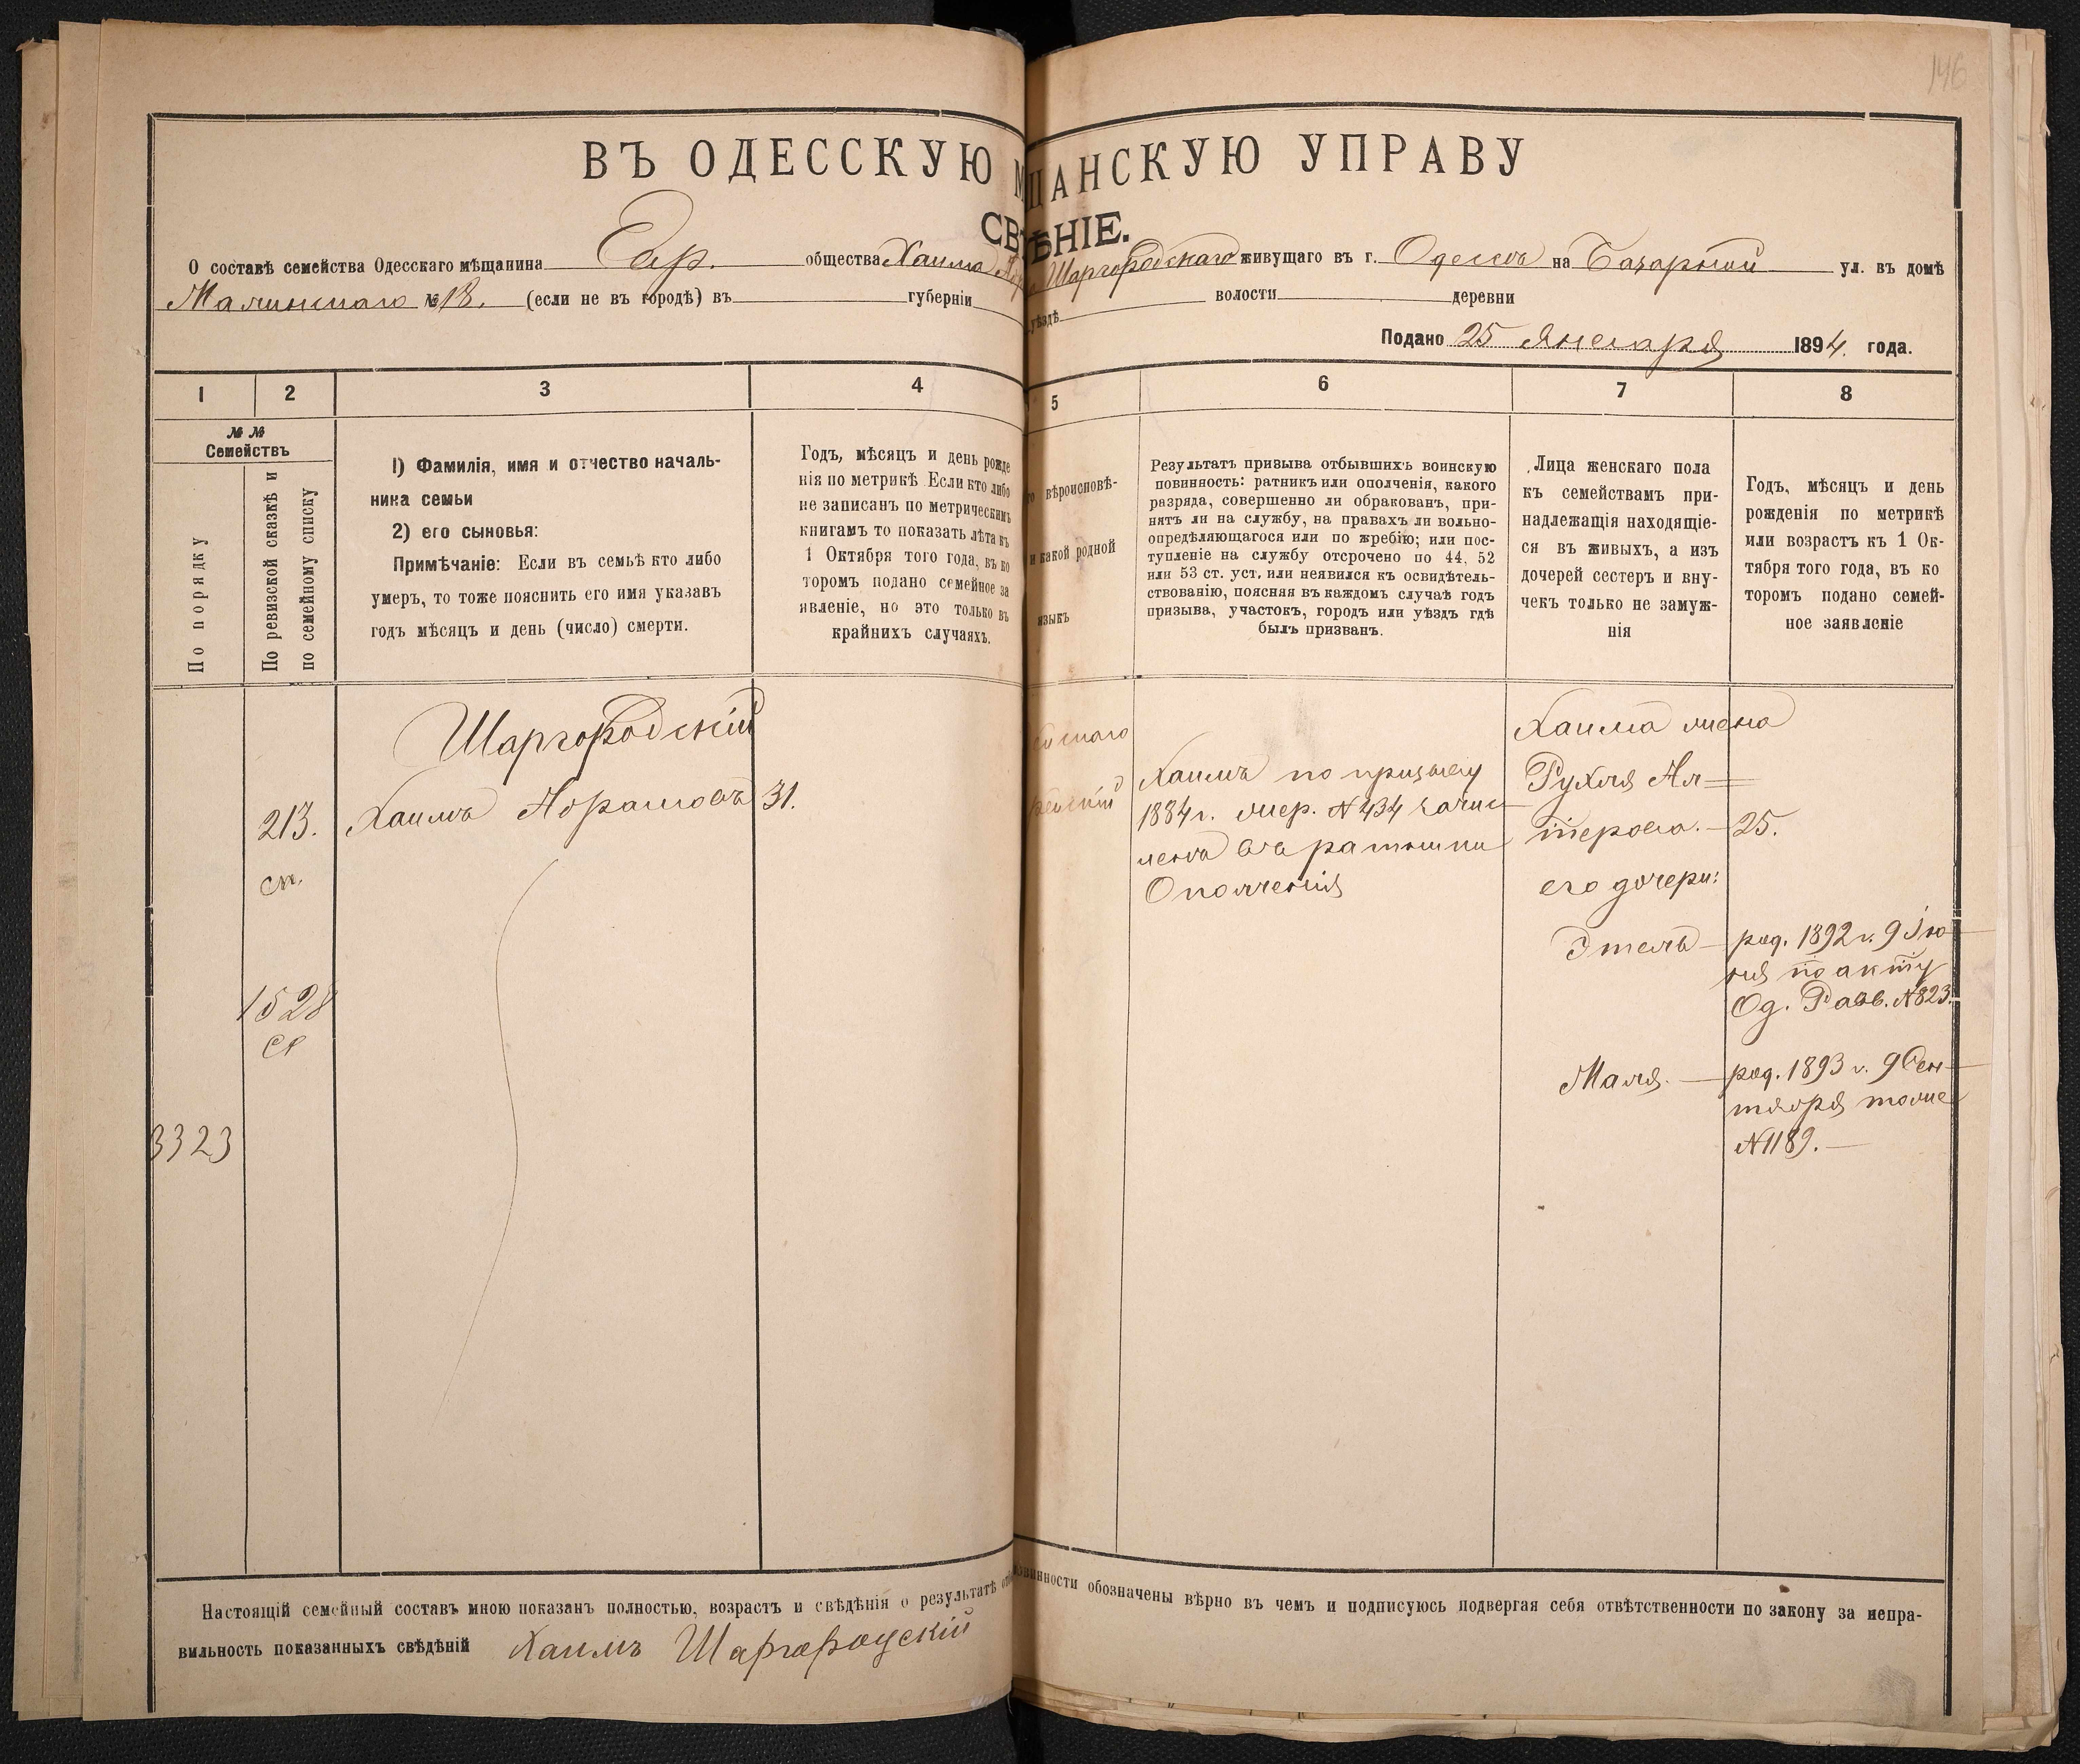 146
ВЪ ОДЕССКУЮ М ЩАНСКУЮ УПРАВУ
СВ ѢНІЕ.
О составѣ семейства Одесскаго мѣщанина Евр. общества Хаима Шаргородскаго живущаго въ г. Одессѣ на Базарной ул. въ домѣ
Малинскаго № 18. (если не въ городѣ) въ губерніи уѣздѣ волости деревни
Подано 25 Января 1894. года.
1 2 3 4 5 6 7 8
№ №
Семействъ
По порядку
По ревизской сказкѣ и
по семейному списку
1) Фамилія, имя и отчество началь-
ника семьи
2) его сыновья:
Примѣчаніе: Если въ семьѣ кто либо
умеръ, то тоже пояснить его имя указавъ
годъ мѣсяцъ и день (число) смерти.
Годъ, мѣсяцъ и день рожде
нія по метрикѣ Если кто либо
не записанъ по метрическимъ
книгамъ то показать лѣта къ
1 Октября того года, въ ко
торомъ подано семейное за
явленіе, но это только въ
крайнихъ случаяхъ.
вѣроисповѣ-
и какой родной
языкъ
Результатъ призыва отбывшихъ воинскую
повинность: ратникъ или ополченія, какого
разряда, совершенно ли обракованъ, при-
нятъ ли на службу, на правахъ ли вольно-
опредѣляющагося или по жребію; или пос-
тупленіе на службу отсрочено по 44, 52
или 53 ст. уст. или неявился къ освидѣтель-
ствованію, поясняя въ каждомъ случаѣ годъ
призыва, участокъ, городъ или уѣздъ гдѣ
былъ призванъ.
Лица женскаго пола
къ семействамъ при-
надлежащія находящіе-
ся въ живыхъ, а изъ
дочерей сестеръ и вну-
чекъ только не замуж-
нія
Годъ, мѣсяцъ и день
рожденія по метрикѣ
или возрастъ къ 1 Ок-
тября того года, въ ко
торомъ подано семей-
ное заявленіе
Шаргородскій
213. Хаимъ Абрамовъ 31.
сп.
1528
3323
Хаимъ по призыву
1884 г. жер. № 434 зачис
ленъ въ ратники
Ополченія
Хаима жена
Рухля Ал=
терова. — 25.
его дочери:
Этель — род. 1892 г. 9 Ію
ня по акту
Од. Равв. № 823.
Маля. — род. 1893 г. 9 Сен-
тября тоже
№ 1189. —
Настоящій семейный составъ мною показанъ полностью, возрастъ и свѣдѣнія о результатѣ повинности обозначены вѣрно въ чемъ и подписуюсь подвергая себя отвѣтственности по закону за непра-
вильность показанныхъ свѣдѣній Хаимъ Шаргородскій